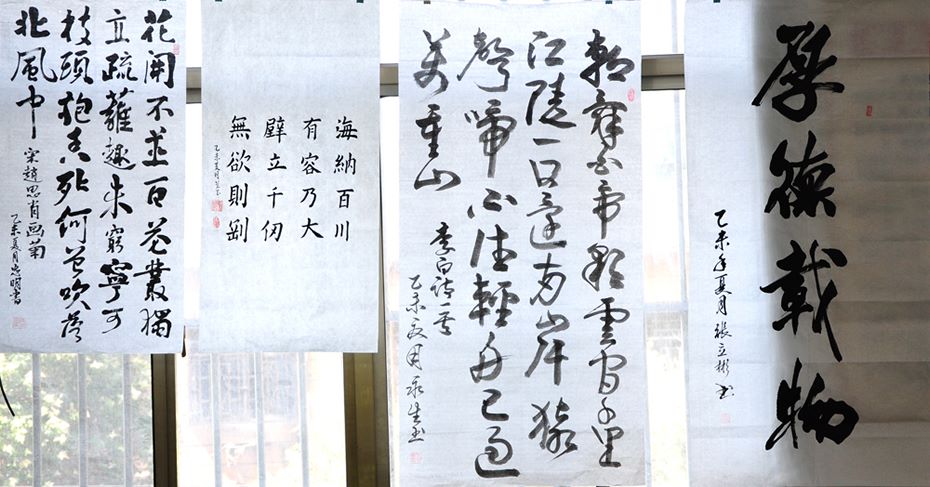 厚德載物
乙未年夏月張立彬書
朝辞白帝彩雲間千里
江陵一日還兩岸猿
聲啼不住輕舟已過
萬重山
李白詩一首
乙未夏月永生書
海納百川
有容乃大
壁立千仞
無欲則剛
乙未夏月
花開不並百花叢獨
立疏籬趣未窮寧可
枝頭抱香死何曾吹落
北風中
宋趙思肖画菊
乙未夏月忠明書